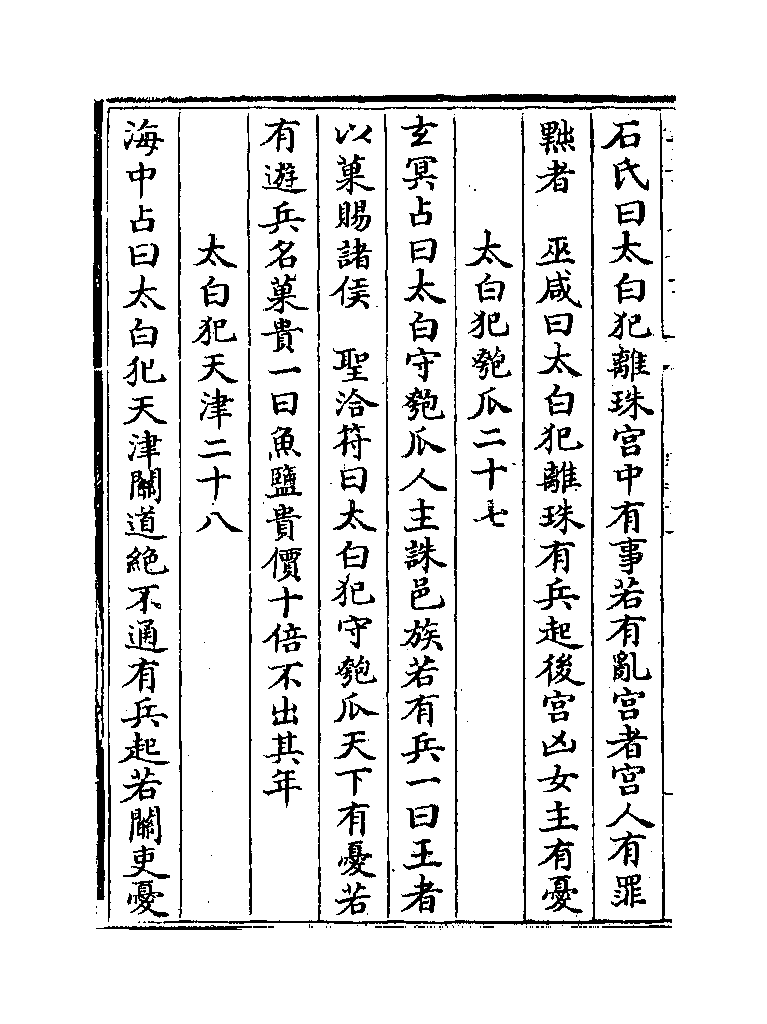 石氏曰太白犯離珠宫中有事若有亂宫者宫人有罪
黜者　巫咸曰太白犯離珠有兵起後宫凶女主有憂
太白犯匏瓜二十七
玄冥占曰太白守匏瓜人主誅邑族若有兵一曰王者
以菓賜諸侯　聖洽符曰太白犯守匏瓜天下有憂若
有遊兵名菓貴一曰魚鹽貴價十倍不出其年
太白犯天津二十八
海中占曰太白犯天津關道絶不通有兵起若關吏憂